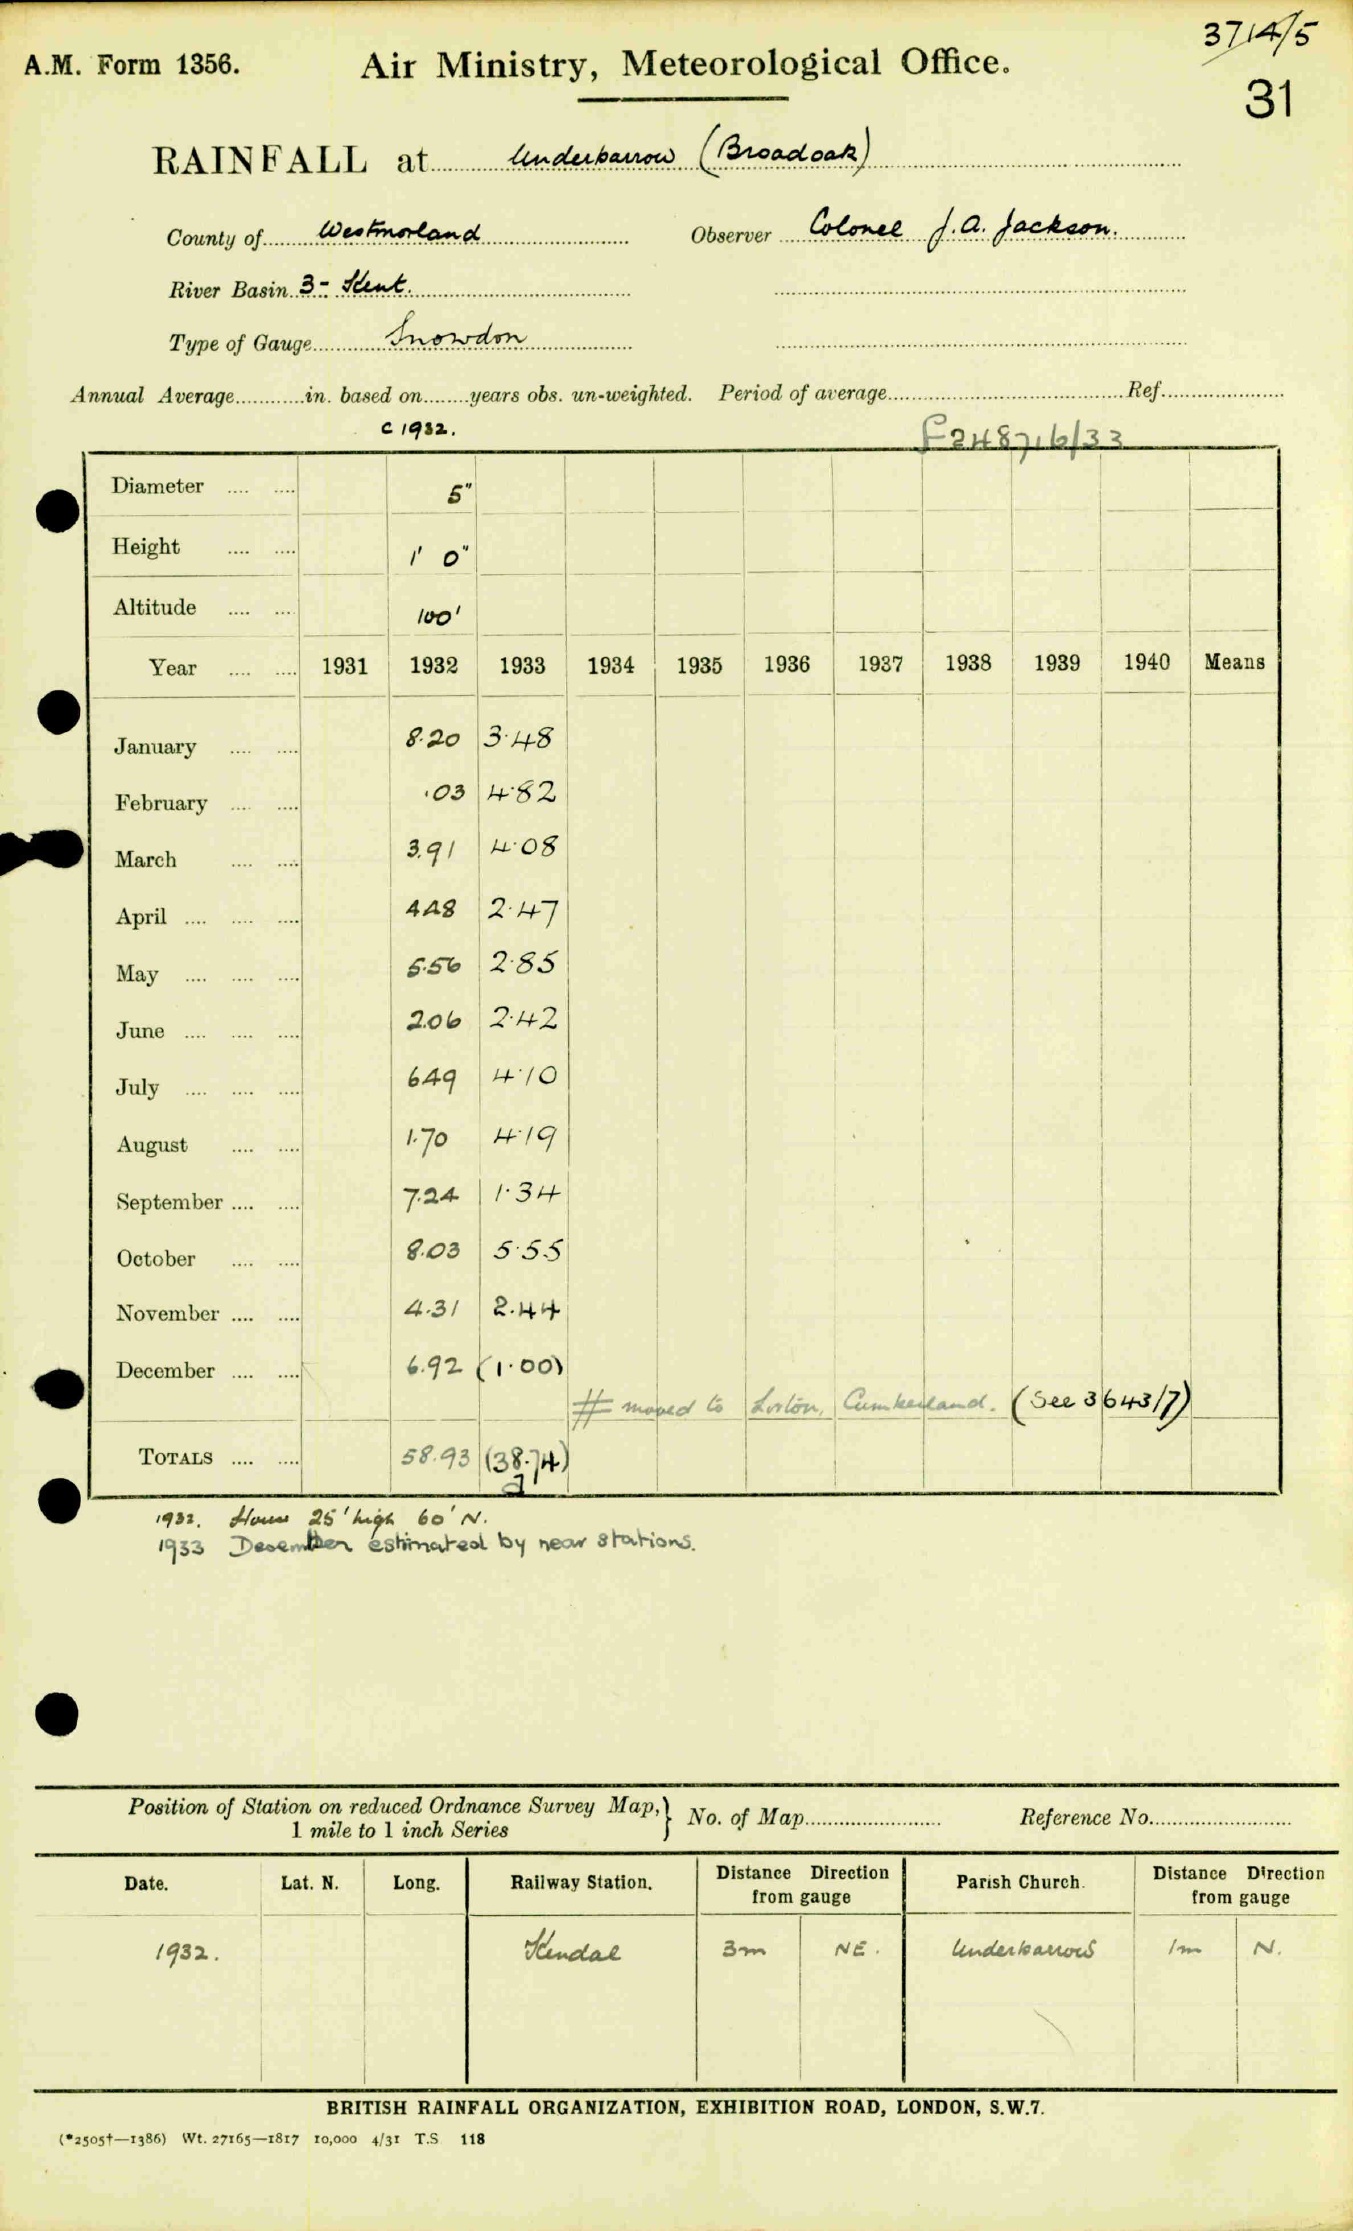 3714/5
A.M. Form 1356. Air Ministry, Meteorological Office.
31
RAINFALL at Underbarrow (Broadoak)
County of Westmorland Observer Colonel J. A. Jackson.
River Basin 3- Kent.
Type of Gauge Snowdon
Annual Average............in. based on........years obs. un-weighted. Period of average............ Ref............
c 1932. F248716/33
Diameter .... .... 5"
Height .... .... 1' 0"
Altitude .... .... 100'
Year .... .... 1931 1932 1933 1934 1935 1936 1937 1938 1939 1940 Means
January .... .... 8.20 3.48
February .... .... .03 4.82
March .... .... 3.91 4.08
April .... .... .... 4.48 2.47
May .... .... .... 5.56 2.85
June .... .... .... 2.06 2.42
July .... .... .... 6.49 4.10
August .... .... 1.70 4.19
September .... .... 7.24 1.34
October .... .... 8.03 5.55
November .... .... 4.31 2.44
December .... .... 6.92 (1.00)
# moved to Lorton, Cumberland. (See 3643/7)
TOTALS .... .... 58.93 (38.74)
1932. House 25' high 60' N.
1933 December estimated by near stations.
Position of Station on reduced Ordnance Survey Map,} No. of Map............ Reference No............
1 mile to 1 inch Series
Date. Lat. N. Long. Railway Station. Distance Direction from gauge Parish Church. Distance Direction from gauge
1932. Kendal 3m NE. Underbarrow 1m N.
BRITISH RAINFALL ORGANIZATION, EXHIBITION ROAD, LONDON, S.W.7.
(*2505†—1386) Wt. 27165—1817 10,000 4/31 T.S 118